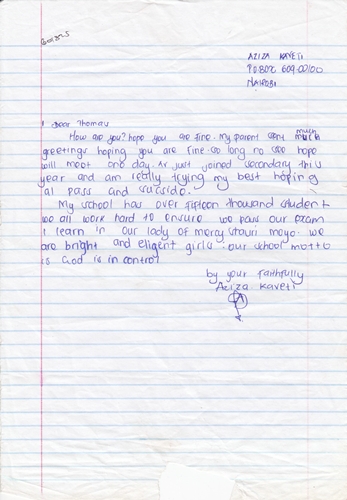 AZIZA KAVETI
P.O BOX 609-00100
NAIROBI
Dear Thomas
How are you? hope you are fine. My parent very much
greetings hoping you are fine. So long no see hope
will meet one day. Ar just joined secondary this
year and am really trying my best hoping
al pass and
My school has over fifteen thousand student
we all work hard to ensure we pass our exam
I learn in our lady of mercy moyo. we
are bright and eligent girls. our school motto
is God is in control
by your faithfully
Aziza Kaveti